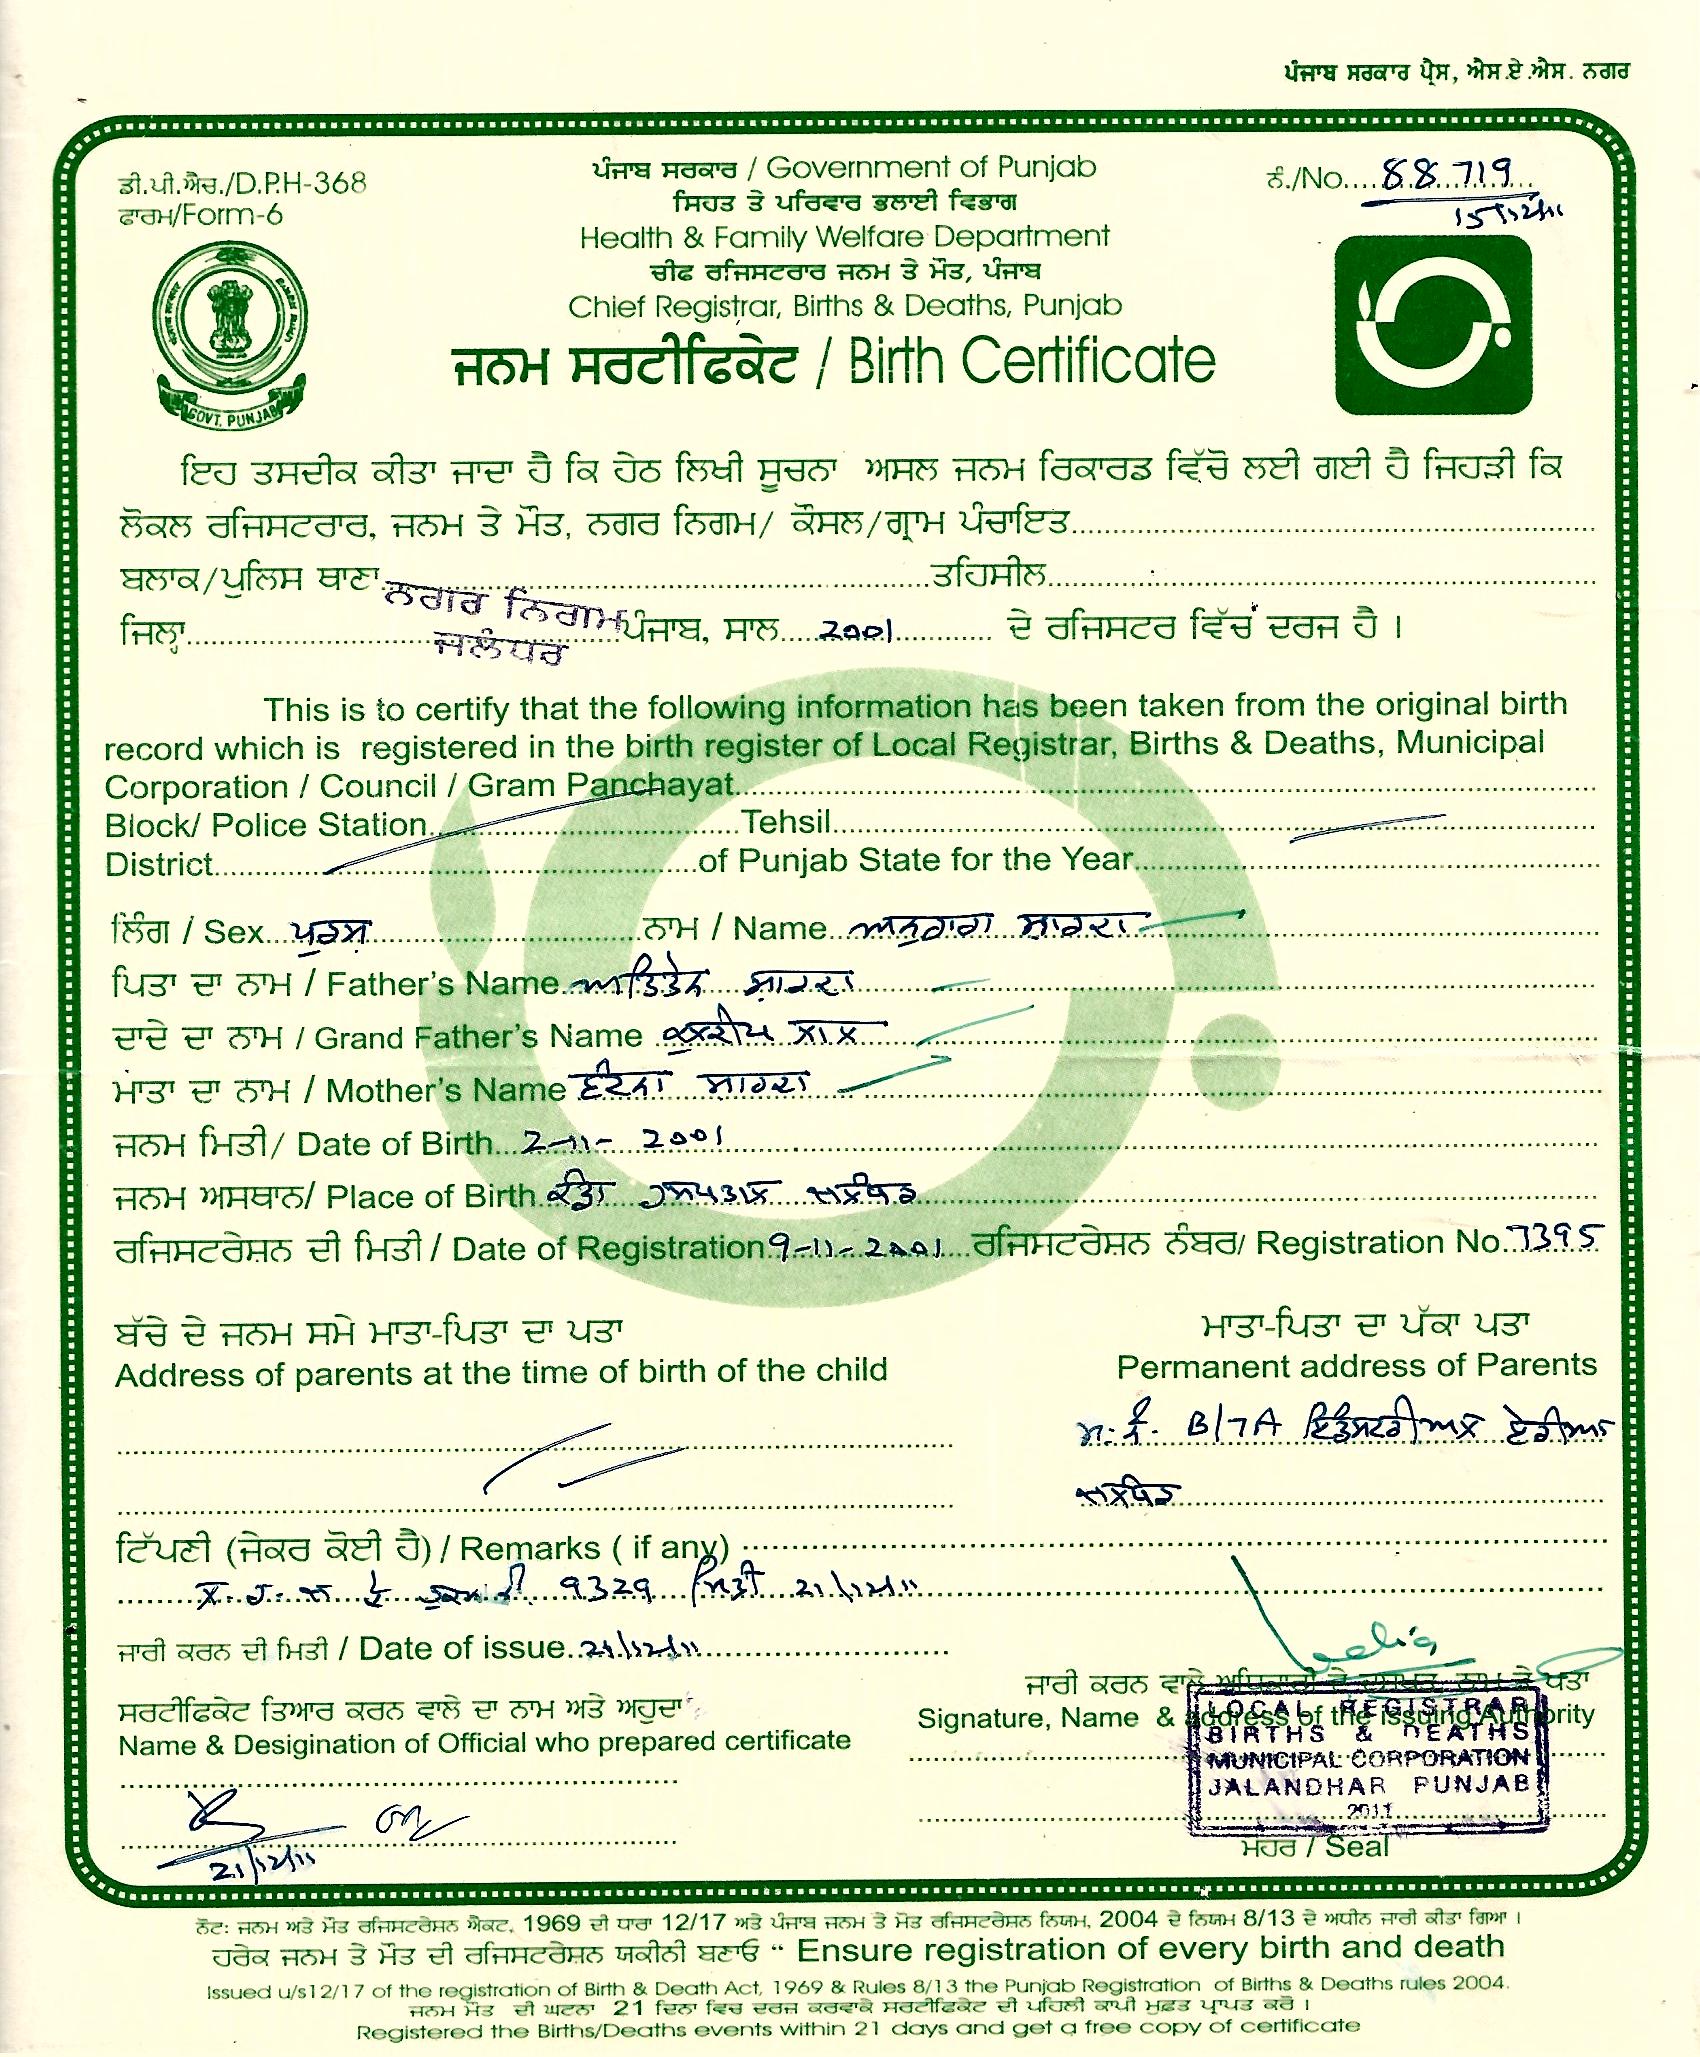 ਪੰਜਾਬ ਸਰਕਾਰ ਪ੍ਰੈਸ, ਐਸ.ਏ.ਐਸ. ਨਗਰ
ਡੀ.ਪੀ.ਐਚ./D.P.H-368
ਫਾਰਮ/Form-6
ਪੰਜਾਬ ਸਰਕਾਰ / Government of Punjab
ਸਿਹਤ ਤੇ ਪਰਿਵਾਰ ਭਲਾਈ ਵਿਭਾਗ
Health & Family Welfare Department
ਚੀਫ ਰਜਿਸਟਰਾਰ ਜਨਮ ਤੇ ਮੌਤ, ਪੰਜਾਬ
Chief Registrar, Births & Deaths, Punjab
ਜਨਮ ਸਰਟੀਫਿਕੇਟ / Birth Certificate
ਨੰ./No.... 88719
15/12/11
GOVT. PUNJAB
ਇਹ ਤਸਦੀਕ ਕੀਤਾ ਜਾਦਾ ਹੈ ਕਿ ਹੇਠ ਲਿਖੀ ਸੂਚਨਾ ਅਸਲ ਜਨਮ ਰਿਕਾਰਡ ਵਿੱਚੋ ਲਈ ਗਈ ਹੈ ਜਿਹੜੀ ਕਿ
ਲੋਕਲ ਰਜਿਸਟਰਾਰ, ਜਨਮ ਤੇ ਮੌਤ, ਨਗਰ ਨਿਗਮ/ ਕੌਸਲ/ਗ੍ਰਾਮ ਪੰਚਾਇਤ
ਬਲਾਕ/ਪੁਲਿਸ ਥਾਣਾ ਨਗਰ ਨਿਗਮ ਤਹਿਸੀਲ
ਜਿਲ੍ਹਾ ਜਲੰਧਰ ਪੰਜਾਬ, ਸਾਲ 2001 ਦੇ ਰਜਿਸਟਰ ਵਿੱਚ ਦਰਜ ਹੈ ।
This is to certify that the following information has been taken from the original birth
record which is registered in the birth register of Local Registrar, Births & Deaths, Municipal
Corporation / Council / Gram Panchayat
Block/ Police Station Tehsil
District of Punjab State for the Year
ਲਿੰਗ / Sex ਪੁਰਸ਼ ਨਾਮ / Name ਅਨੁਰਾਗ ਸ਼ਾਰਦਾ
ਪਿਤਾ ਦਾ ਨਾਮ / Father's Name ਸ਼ਾਰਦਾ
ਦਾਦੇ ਦਾ ਨਾਮ / Grand Father's Name ਕੁਲਦੀਪ ਲਾਲ
ਮਾਤਾ ਦਾ ਨਾਮ / Mother's Name ਵੰਦਨਾ ਸ਼ਾਰਦਾ
ਜਨਮ ਮਿਤੀ/ Date of Birth 2-11- 2001
ਜਨਮ ਅਸਥਾਨ/ Place of Birth ਹਸਪਤਾਲ ਜਲੰਧਰ
ਰਜਿਸਟਰੇਸ਼ਨ ਦੀ ਮਿਤੀ / Date of Registration 9-11-2001 ਰਜਿਸਟਰੇਸ਼ਨ ਨੰਬਰ/ Registration No. 7395
ਬੱਚੇ ਦੇ ਜਨਮ ਸਮੇ ਮਾਤਾ-ਪਿਤਾ ਦਾ ਪਤਾ
Address of parents at the time of birth of the child
ਮਾਤਾ-ਪਿਤਾ ਦਾ ਪੱਕਾ ਪਤਾ
Permanent address of Parents
ਮ: ਨੰ. B/7A ਇੰਡਸਟਰੀਅਲ ਏਰੀਆ
ਜਲੰਧਰ
ਟਿੱਪਣੀ (ਜੇਕਰ ਕੋਈ ਹੈ) / Remarks ( if any)
ਲ.ਰ.ਜ ਦੇ ਹੁਕਮ ਨੰ. 9329 ਮਿਤੀ 21/12/11
ਜਾਰੀ ਕਰਨ ਦੀ ਮਿਤੀ / Date of issue 21/12/11
ਸਰਟੀਫਿਕੇਟ ਤਿਆਰ ਕਰਨ ਵਾਲੇ ਦਾ ਨਾਮ ਅਤੇ ਅਹੁਦਾ
Name & Desigination of Official who prepared certificate
21/12/11
ਜਾਰੀ ਕਰਨ ਵਾਲੇ ਅਧਿਕਾਰੀ ਦੇ ਦਸਖਤ, ਨਾਮ ਤੇ ਪਤਾ
Signature, Name & address of the Issuing Authority
LOCAL REGISTRAR
BIRTHS & DEATHS
MUNICIPAL CORPORATION
JALANDHAR PUNJAB
2011
ਮੋਹਰ / Seal
ਨੋਟ: ਜਨਮ ਅਤੇ ਮੌਤ ਰਜਿਸਟਰੇਸ਼ਨ ਐਕਟ, 1969 ਦੀ ਧਾਰਾ 12/17 ਅਤੇ ਪੰਜਾਬ ਜਨਮ ਤੇ ਮੌਤ ਰਜਿਸਟਰੇਸ਼ਨ ਨਿਯਮ, 2004 ਦੇ ਨਿਯਮ 8/13 ਦੇ ਅਧੀਨ ਜਾਰੀ ਕੀਤਾ ਗਿਆ ।
ਹਰੇਕ ਜਨਮ ਤੇ ਮੌਤ ਦੀ ਰਜਿਸਟਰੇਸ਼ਨ ਯਕੀਨੀ ਬਣਾਓ “ Ensure registration of every birth and death
Issued u/s12/17 of the registration of Birth & Death Act, 1969 & Rules 8/13 the Punjab Registration of Births & Deaths rules 2004.
ਜਨਮ ਮੌਤ ਦੀ ਘਟਨਾ 21 ਦਿਨਾ ਵਿਚ ਦਰਜ ਕਰਵਾਕੇ ਸਰਟੀਫਿਕੇਟ ਦੀ ਪਹਿਲੀ ਕਾਪੀ ਮੁਫ਼ਤ ਪ੍ਰਾਪਤ ਕਰੋ ।
Registered the Births/Deaths events within 21 days and get a free copy of certificate